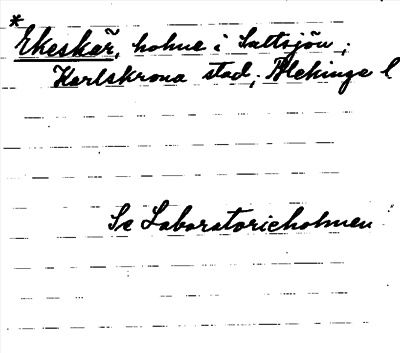 * Ekeskär, holme i Saltsjön,
Karlskrona stad, Blekinge l
Se Laboratorieholmen